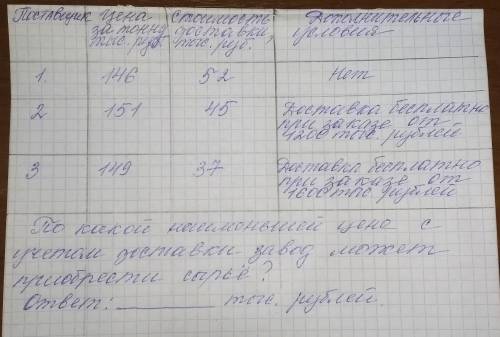 Поставщик Цена за тонну, тыс. руб. Стоимость доставки, тыс. руб. Дополнительные условия
1. 146 52 Нет
2 151 45 Доставка бесплатно при заказе от 1200 тыс. рублей
3 149 37 Доставка бесплатно при заказе от 1600 тыс. рублей
По какой наименьшей цене с
учетом доставки завод может
приобрести сырьё?
Ответ: ________ тыс. рублей.